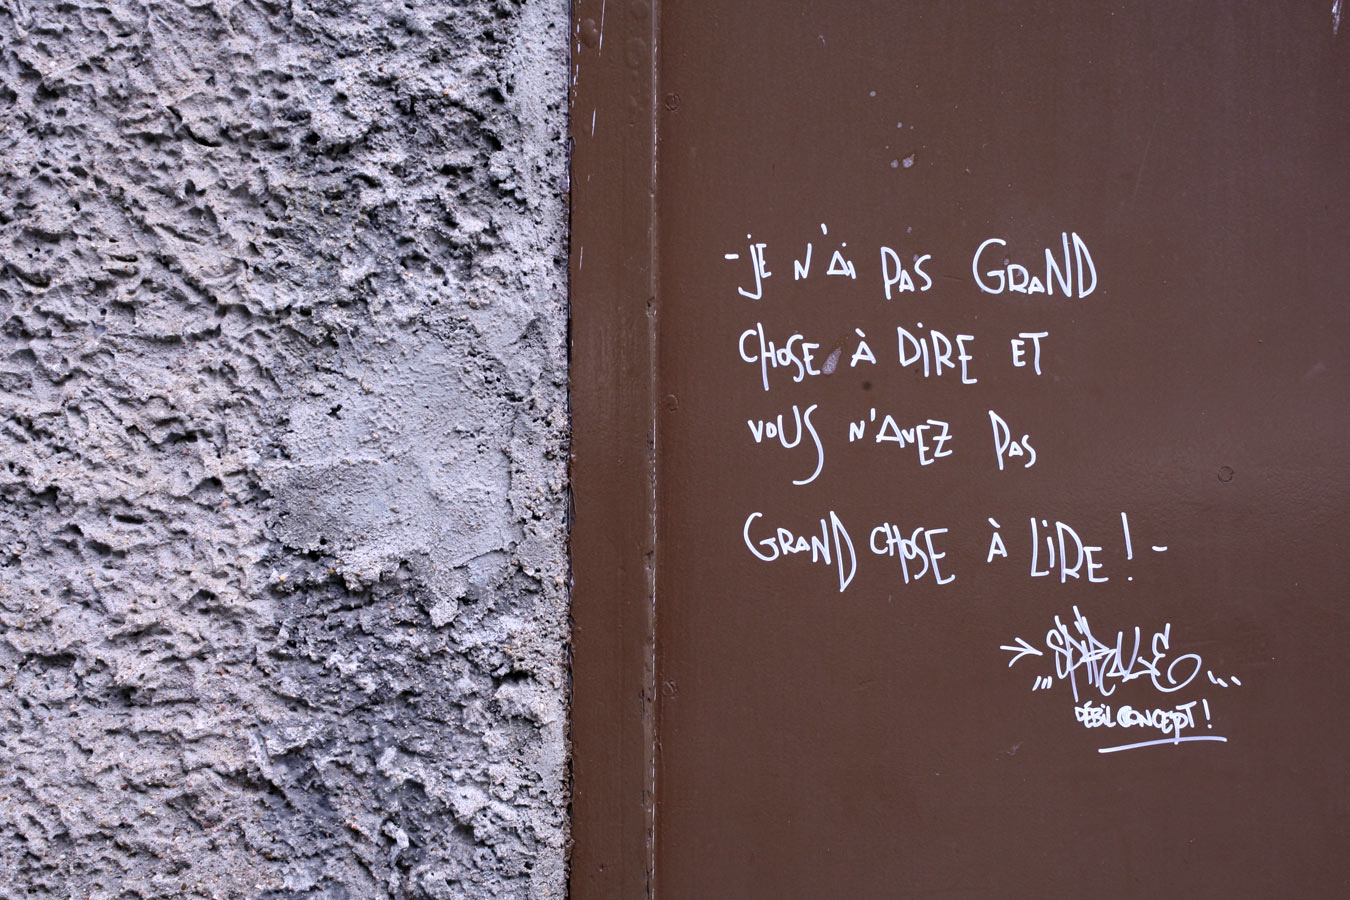 - JE N'Ai PAS GRAND
CHOSE À DIRE ET
VOUS N'AVEZ PAS
GRAND CHOSE À LIRE ! -
→ SPIRALE ...
DÉBIL CONCEPT !